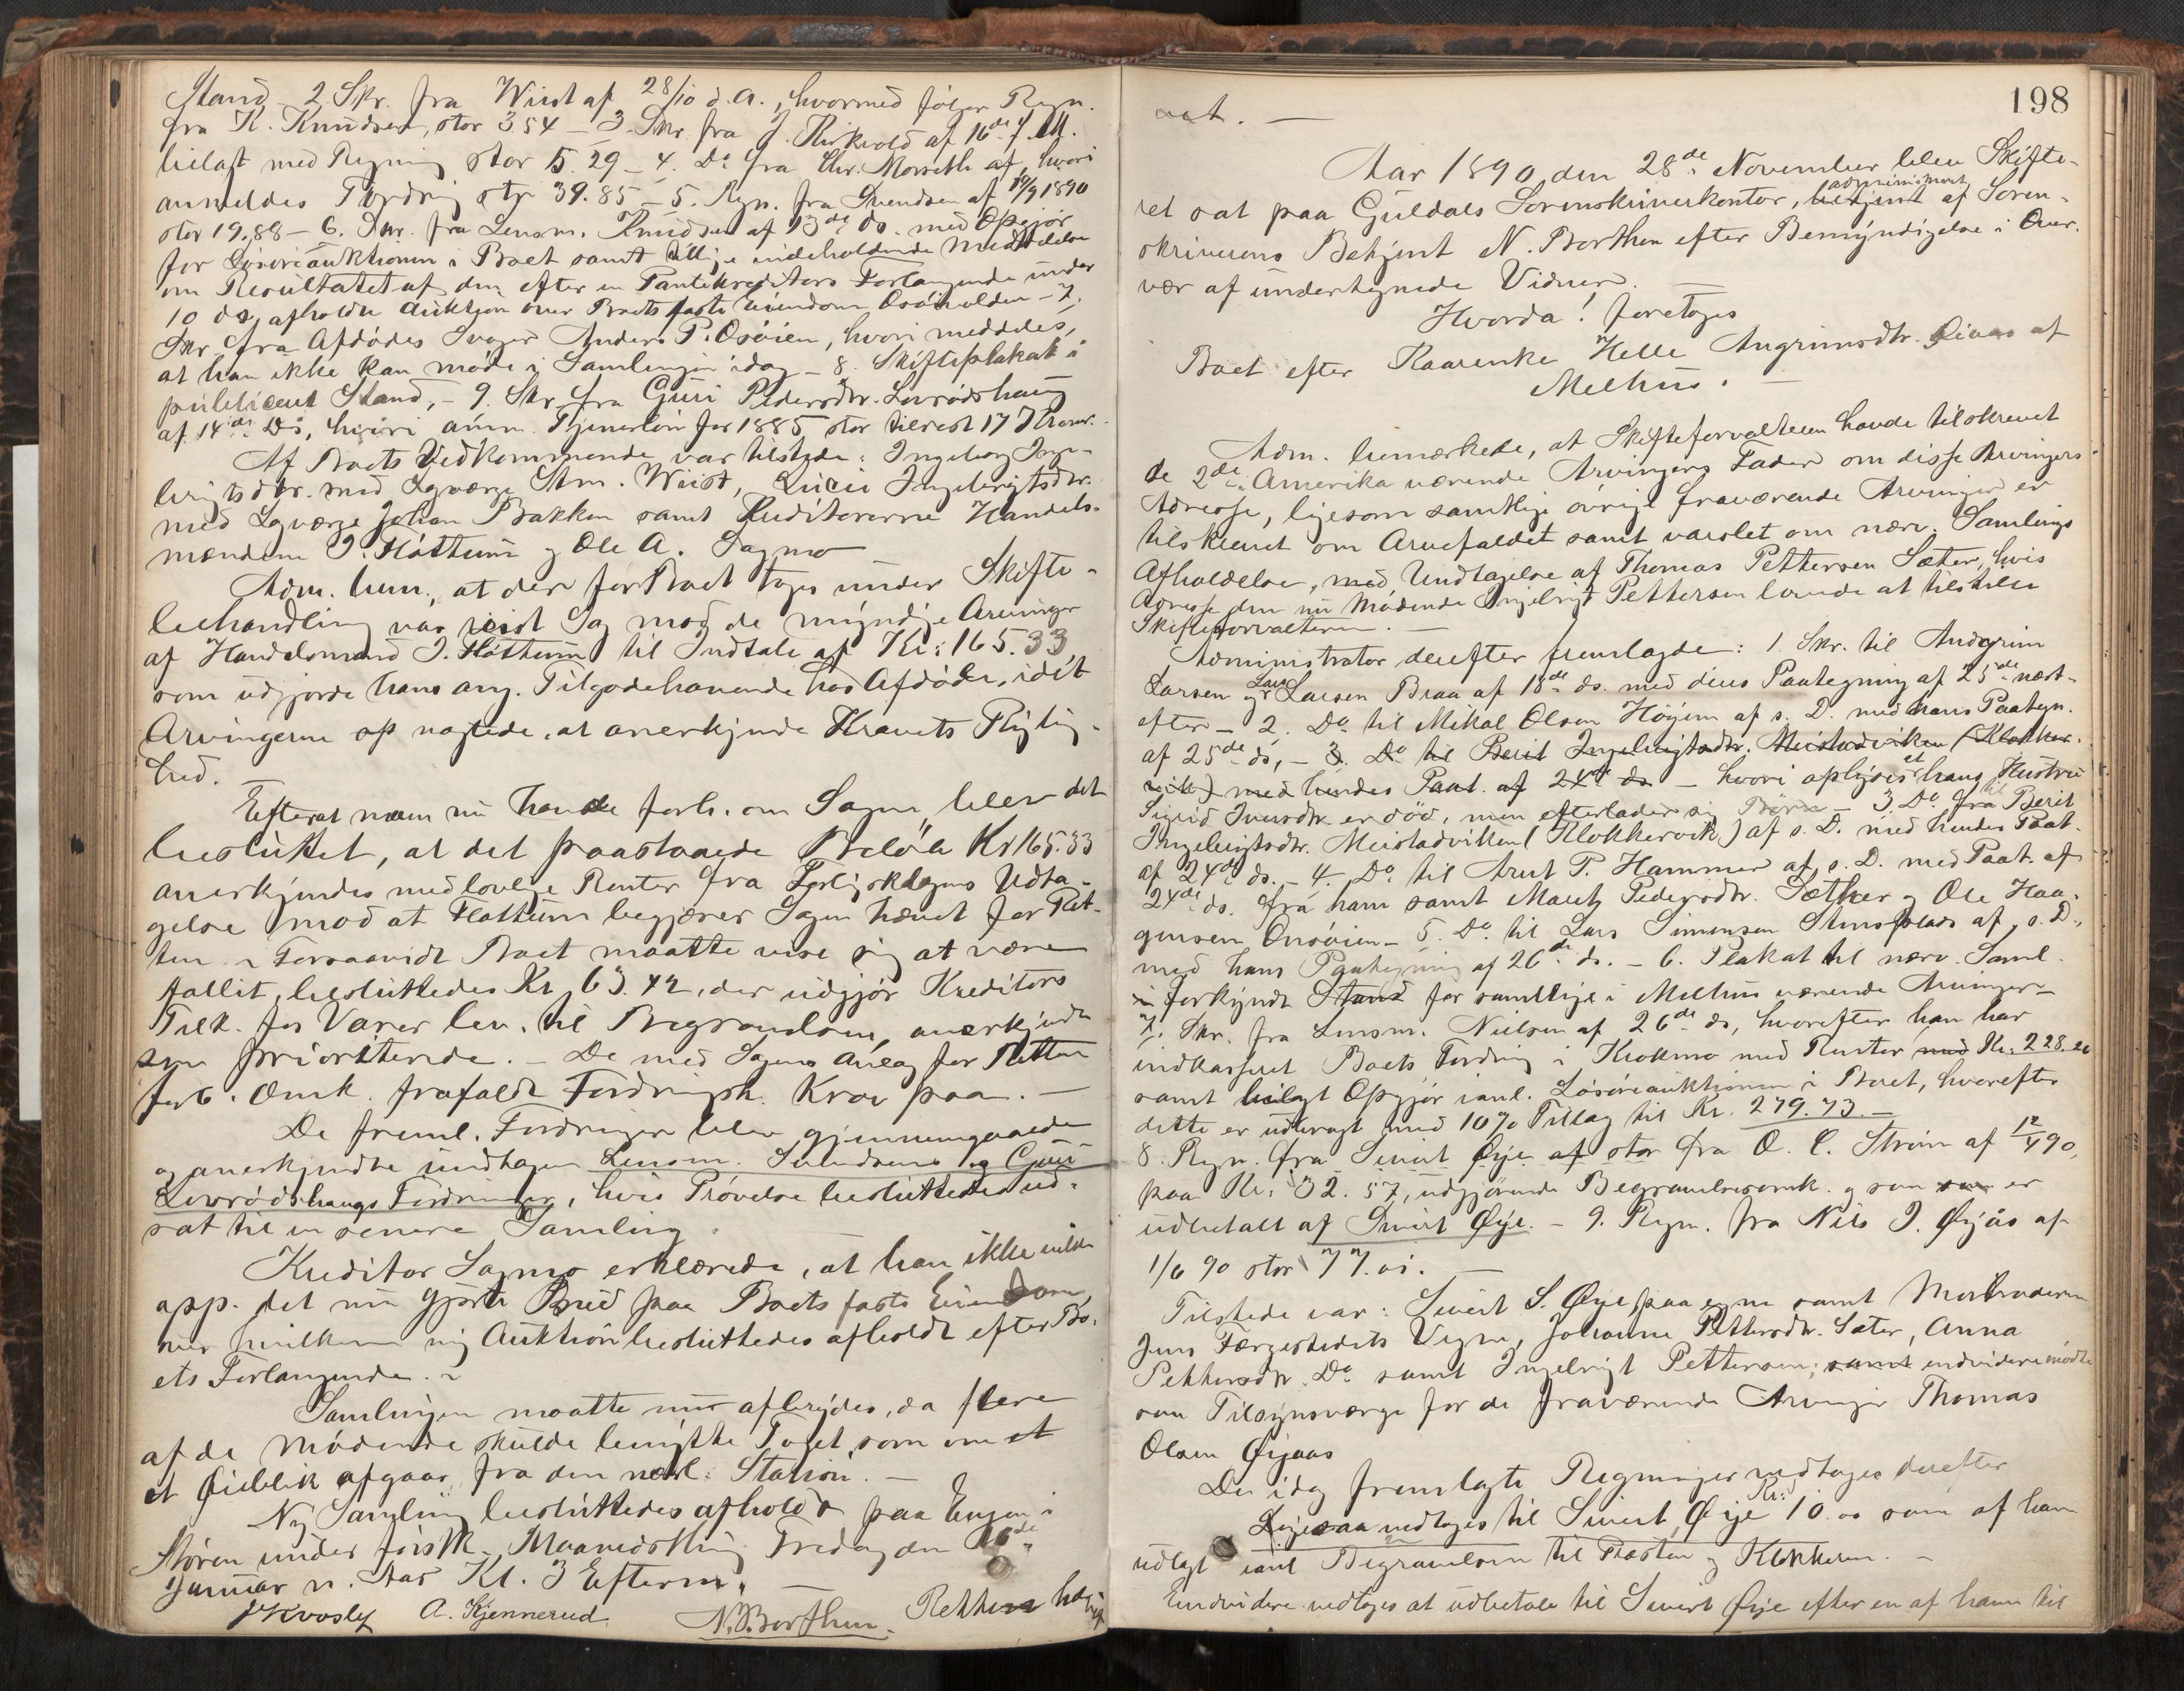 Stand 2. Skr. fra Wiist af 28/10 d. A., hvormed følger Regn.
fra K. Knudsen, stor 3.54 – 3. Skr. fra J. Kirkvold af 16de f. M.
bilagt med Regning stor 15.29 – 4. Do fra Chr. Morseth af, hvori
anmeldes Fordring stor 39.85 – 5. Regn. fra Svendsen af 19/9 1890
stor 19.88 – 6. Skr. fra Lensm. Knudsen af 13de ds. med Opgjør
for Løsøreauktionen i Boet samt tillige indeholdende Meddelelse
om Resultatet af den efter en Pantekreditors Forlangende under
10 ds. afholdte Auktion over Boets faste Eiendom Osøivolden – 7.
Skr fra Afdødes Svoger Anders P. Osøien, hvori meddeles,
at han ikke kan møde i Samlingen idag – 8. Skifteplakat i
publiceret Stand, – 9. Skr. fra Guri Pedersdtr. Lovrødshaug
af 14de Ds, hvori anm. Tjenerløn for 1885 stor tilrest 17 Kroner.
Af Boets Vedkommende var tilstede: Ingeborg Inge-
brigtsdtr. med Lagværge Wiist, Ingebrigtsdtr.
med Lagværge Johan Bakken samt Kreditorerne Handels-
mændene J. Flåttum og Ole A. Sagmo
Adm. bem., at der før Boet toges under Skifte-
behandling var reist Sag mod de myndige Arvinger
af Handelsmand J. Flåttum til Indtale af Kr: 165.33,
som udgjorde hans ang. Tilgodehavende hos Afdøde, idet
Arvingerne op nægtede at anerkjende Kravets Rigtig-
hed.
Efterat man nu havde forh. om Sagen, blev det
besluttet, at det paastaaede Beløb Kr 165.33
anerkjendes med lovlige Renter fra Forligsklagens Udta-
gelse mod at Flåttum begjærer Sagen hævet for Ret-
ten. Forsaavidt Boet maatte vise sig at være
fallit, besluttedes Kr. 63.42, der udgjør Kreditors
Tilk. for Varer lev. til Begravelsen, anerkjendt
som prioriterede. – De med Sagens Anlæg for Retten
forb. Omk. frafaldt Fordringsh. Krav paa. –
De freml. Fordringer blev gjennemgaaede
og anerkjendte undtagen Lensm. Svendsens og Guri
Lovrødshaugs Fordringer, hvis Prøvelse besluttedes ud-
sat til en senere Samling.
Kreditor Sagmo erklærede, at han ikke vilde
app. det nu gjorte Bud paa Boets faste Eiendom,
over hvilken ny Auktion besluttedes afholdt efter Bo-
ets Forlangende.
Samlingen maatte nu afbrydes, da flere
af de Mødende skulde benytte Toget, som om et
et Øieblik afgaar fra den nærl. Station. –
Ny Samling besluttedes afholdt paa Engen i
Støren under førstk. Maanedsthing Fredag den 16de
Januar n. Aar Kl. 3 Efterm. –
A. Kjennerud N. Borthen.
198
aat. –
Aar 1890 den 28de November blev Skifte-
ret sat paa Guldals Sorenskriverkontor, administreret betjent af Soren-
skriverens Betjent N. Borthen efter Bemyndigelse i Over-
vær af undertegnede Vidner. –
Hvorda! foretoges
Boet efter Kaarenke Helle Angrimsdtr. Øiaas af
Melhus. –
Adm. bemærkede, at Skifteforvalteren havde tilskrevet
de 2de i Amerika værende Arvingers Fader om disse Arvingers
Adresse, ligesom samtlige øvrige fraværende Arvinger er
tilskrevet om Arvefaldet samt varslet om nærv. Samlings
Afholdelse, med Undtagelse af Thomas Pettersen Sæter, hvis
Adresse den nu Mødende Ingebrigt Pettersen lovede at tilstille
Skifteforvalteren. –
Administrator derefter fremlagde: 1. Skr. til Andgrim
Larsen og Lars Larsen Braa af 18de ds. med deres Paategning af 25de næst-
efter – 2. Do til Mikal Olsen Høyem af s. D. med hans Paategn.
af 25de ds, – 3. Do til Berit Ingebrigtsdtr. Meistadvikken (Klokker-
vik) med hendes Paat. af 24de ds – hvori oplyses at hans Hustru
Sigrid Iversdtr er død, men efterlader sig Børn – 3. Do til Berit
Ingebrigtsdtr. Meistadvikken (Klokkervik) af s. D. med hendes Paat.
af 24de ds. – 4. Do til Arnt P. Hammer af s. D. med Paat. af
24de ds. fra ham samt Marit Pedersdtr. Sæther og Ole Haa-
gensen Onsøien – 5. Do til Lars Simensen Stensplads af s. D.,
med hans Paategning af 26de ds. – 6. Plakat til nærv. Saml.
i forkyndt Stand for samtlige i Melhus værende Arvinger –
7. Skr. fra Lensm. Nielsen af 26de ds, hvorefter han har
indkasseret Boets Fordring i Krokmo med Renter med Kr. 228.26
samt bilagt Opgjør ianl. Løsøreauktionen i Boet, hvorefter
dette er udbragt med 10% Tillæg til Kr. 279.73. –
8. Regn. fra Sivert Øye af stor fra O. C. Strøm af 12/4 90,
paa Kr: 32.57, udgjørende Begravelsesomk. og som er
udbetalt af Sivert Øye. – 9. Regn. fra Nils J. Øyås af
1/6 90 stor 77. øi. –
Tilstede var: Sivert S. Øye paa egne samt Morbroderen
Jens Færgestedets Vegne, Johanne Pettersdtr. Sæter, Anna
Pettersdtr. Do samt Ingebrigt Pettersen; samt endvidere mødte
som Tilsynsværge for de fraværende Arvinger Thomas
Olsen Øyaas
De idag fremlagte Regninger vedtoges derefter
Ligesaa vedtoges til Sivert Øye Kr: 10.00 som af ham
udlagt ianl Begravelsen til Præsten og Klokkeren. –
Endvidere vedtoges at udbetale til Sivert Øye efter en af ham til